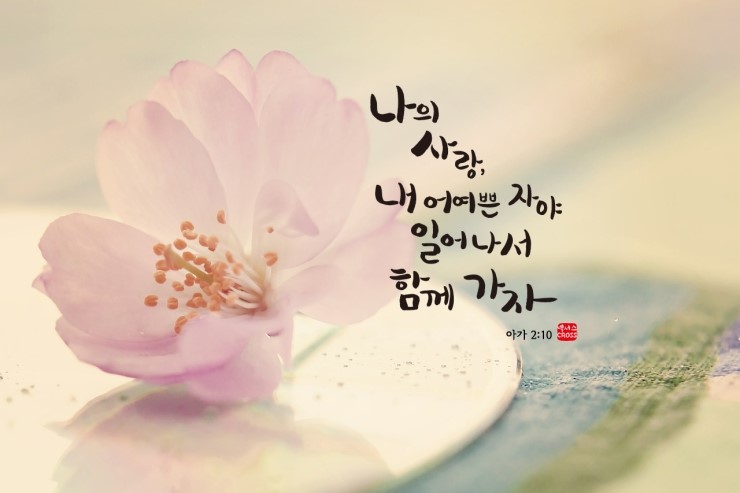 나의
사랑,
내 어여쁜 자야
일어나서
함께 가자
아가 2:10
CROSS